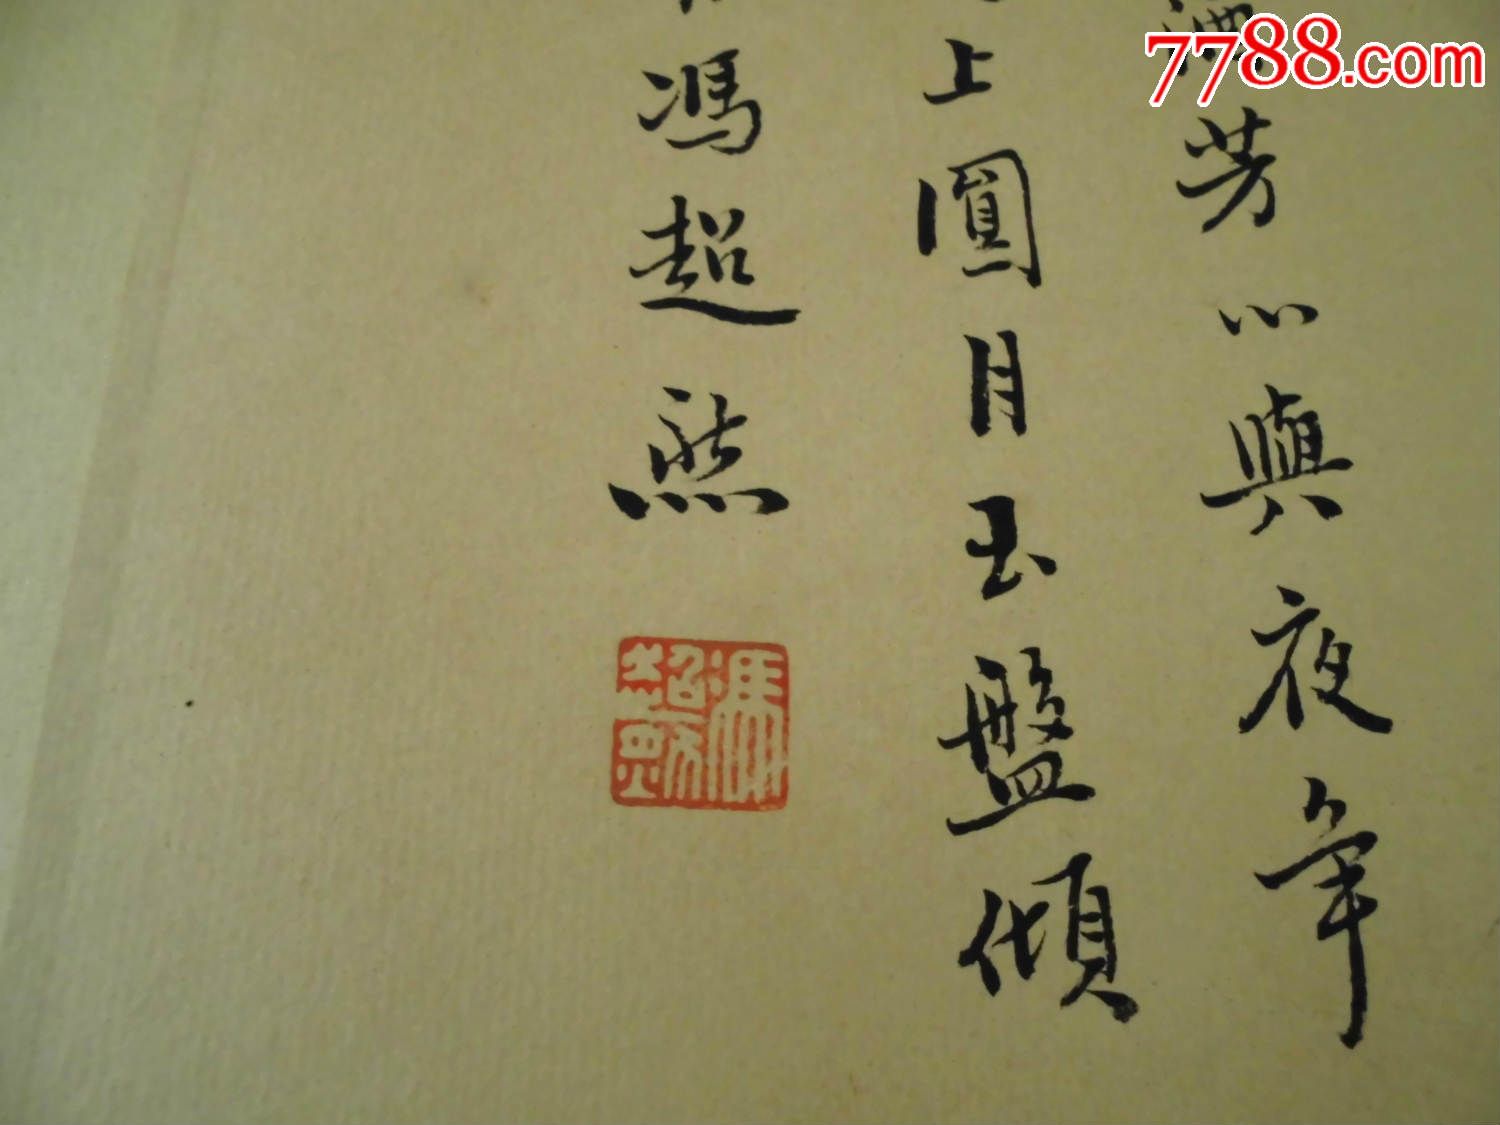 7788.com
芳心與夜爭
上圓月玉盤傾
馮超然
馮超然